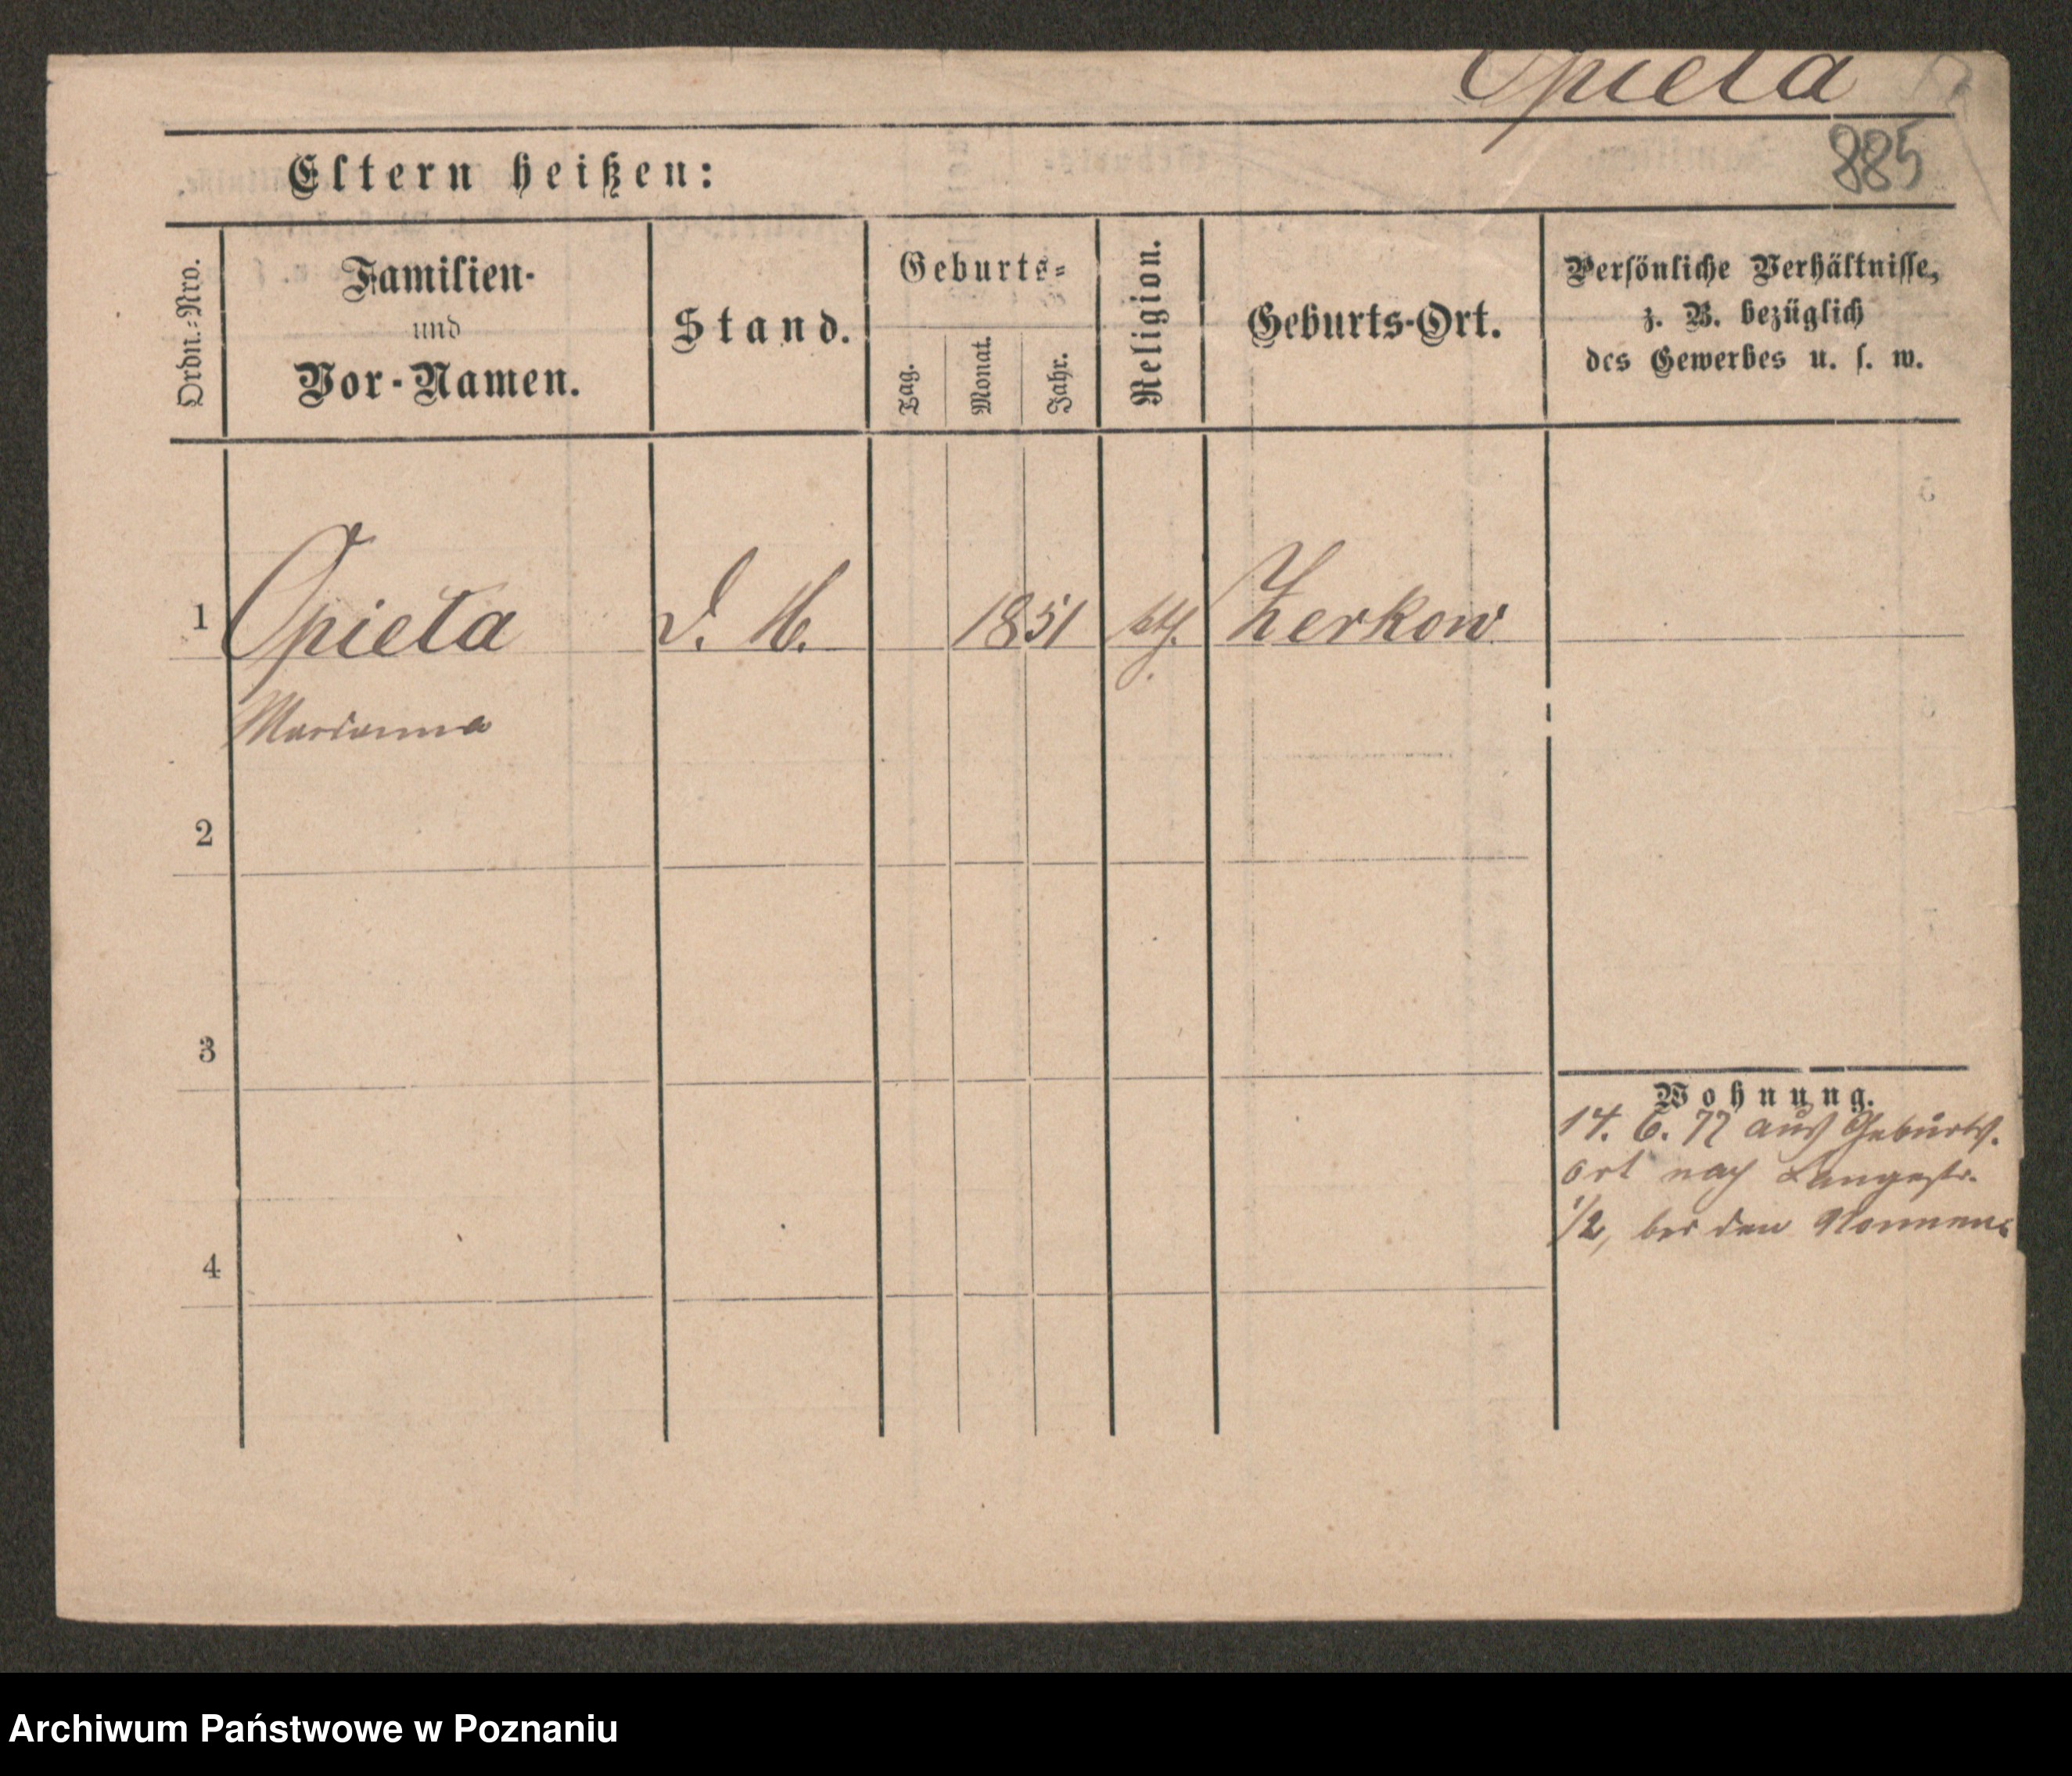 Opieta
885
Eltern heißen:
Ordn.-Nro.
Familien-
und
Vor-Namen.
Stand.
Geburts-
Tag.
Monat.
Jahr.
Religion.
Geburts-Ort.
Persönliche Verhältnisse,
z. B. bezüglich
des Gewerbes u. s. w.
1
Opieta
D. M.
1851
kth.
Zerkow
Marianna
2
3
4
Wohnung.
14. 6. 77 aus Geburts-
ort nach Langestr.
1/2, bei den Nonnen.
Archiwum Państwowe w Poznaniu